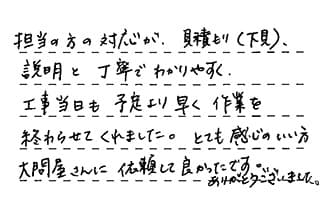 担当の方の対応が、見積もり(下見)、
説明と丁寧でわかりやすく、
工事当日も予定より早く作業を
終わらせてくれました。とても感心のいい方
大問屋さんに依頼して良かったです。
ありがとうございました。